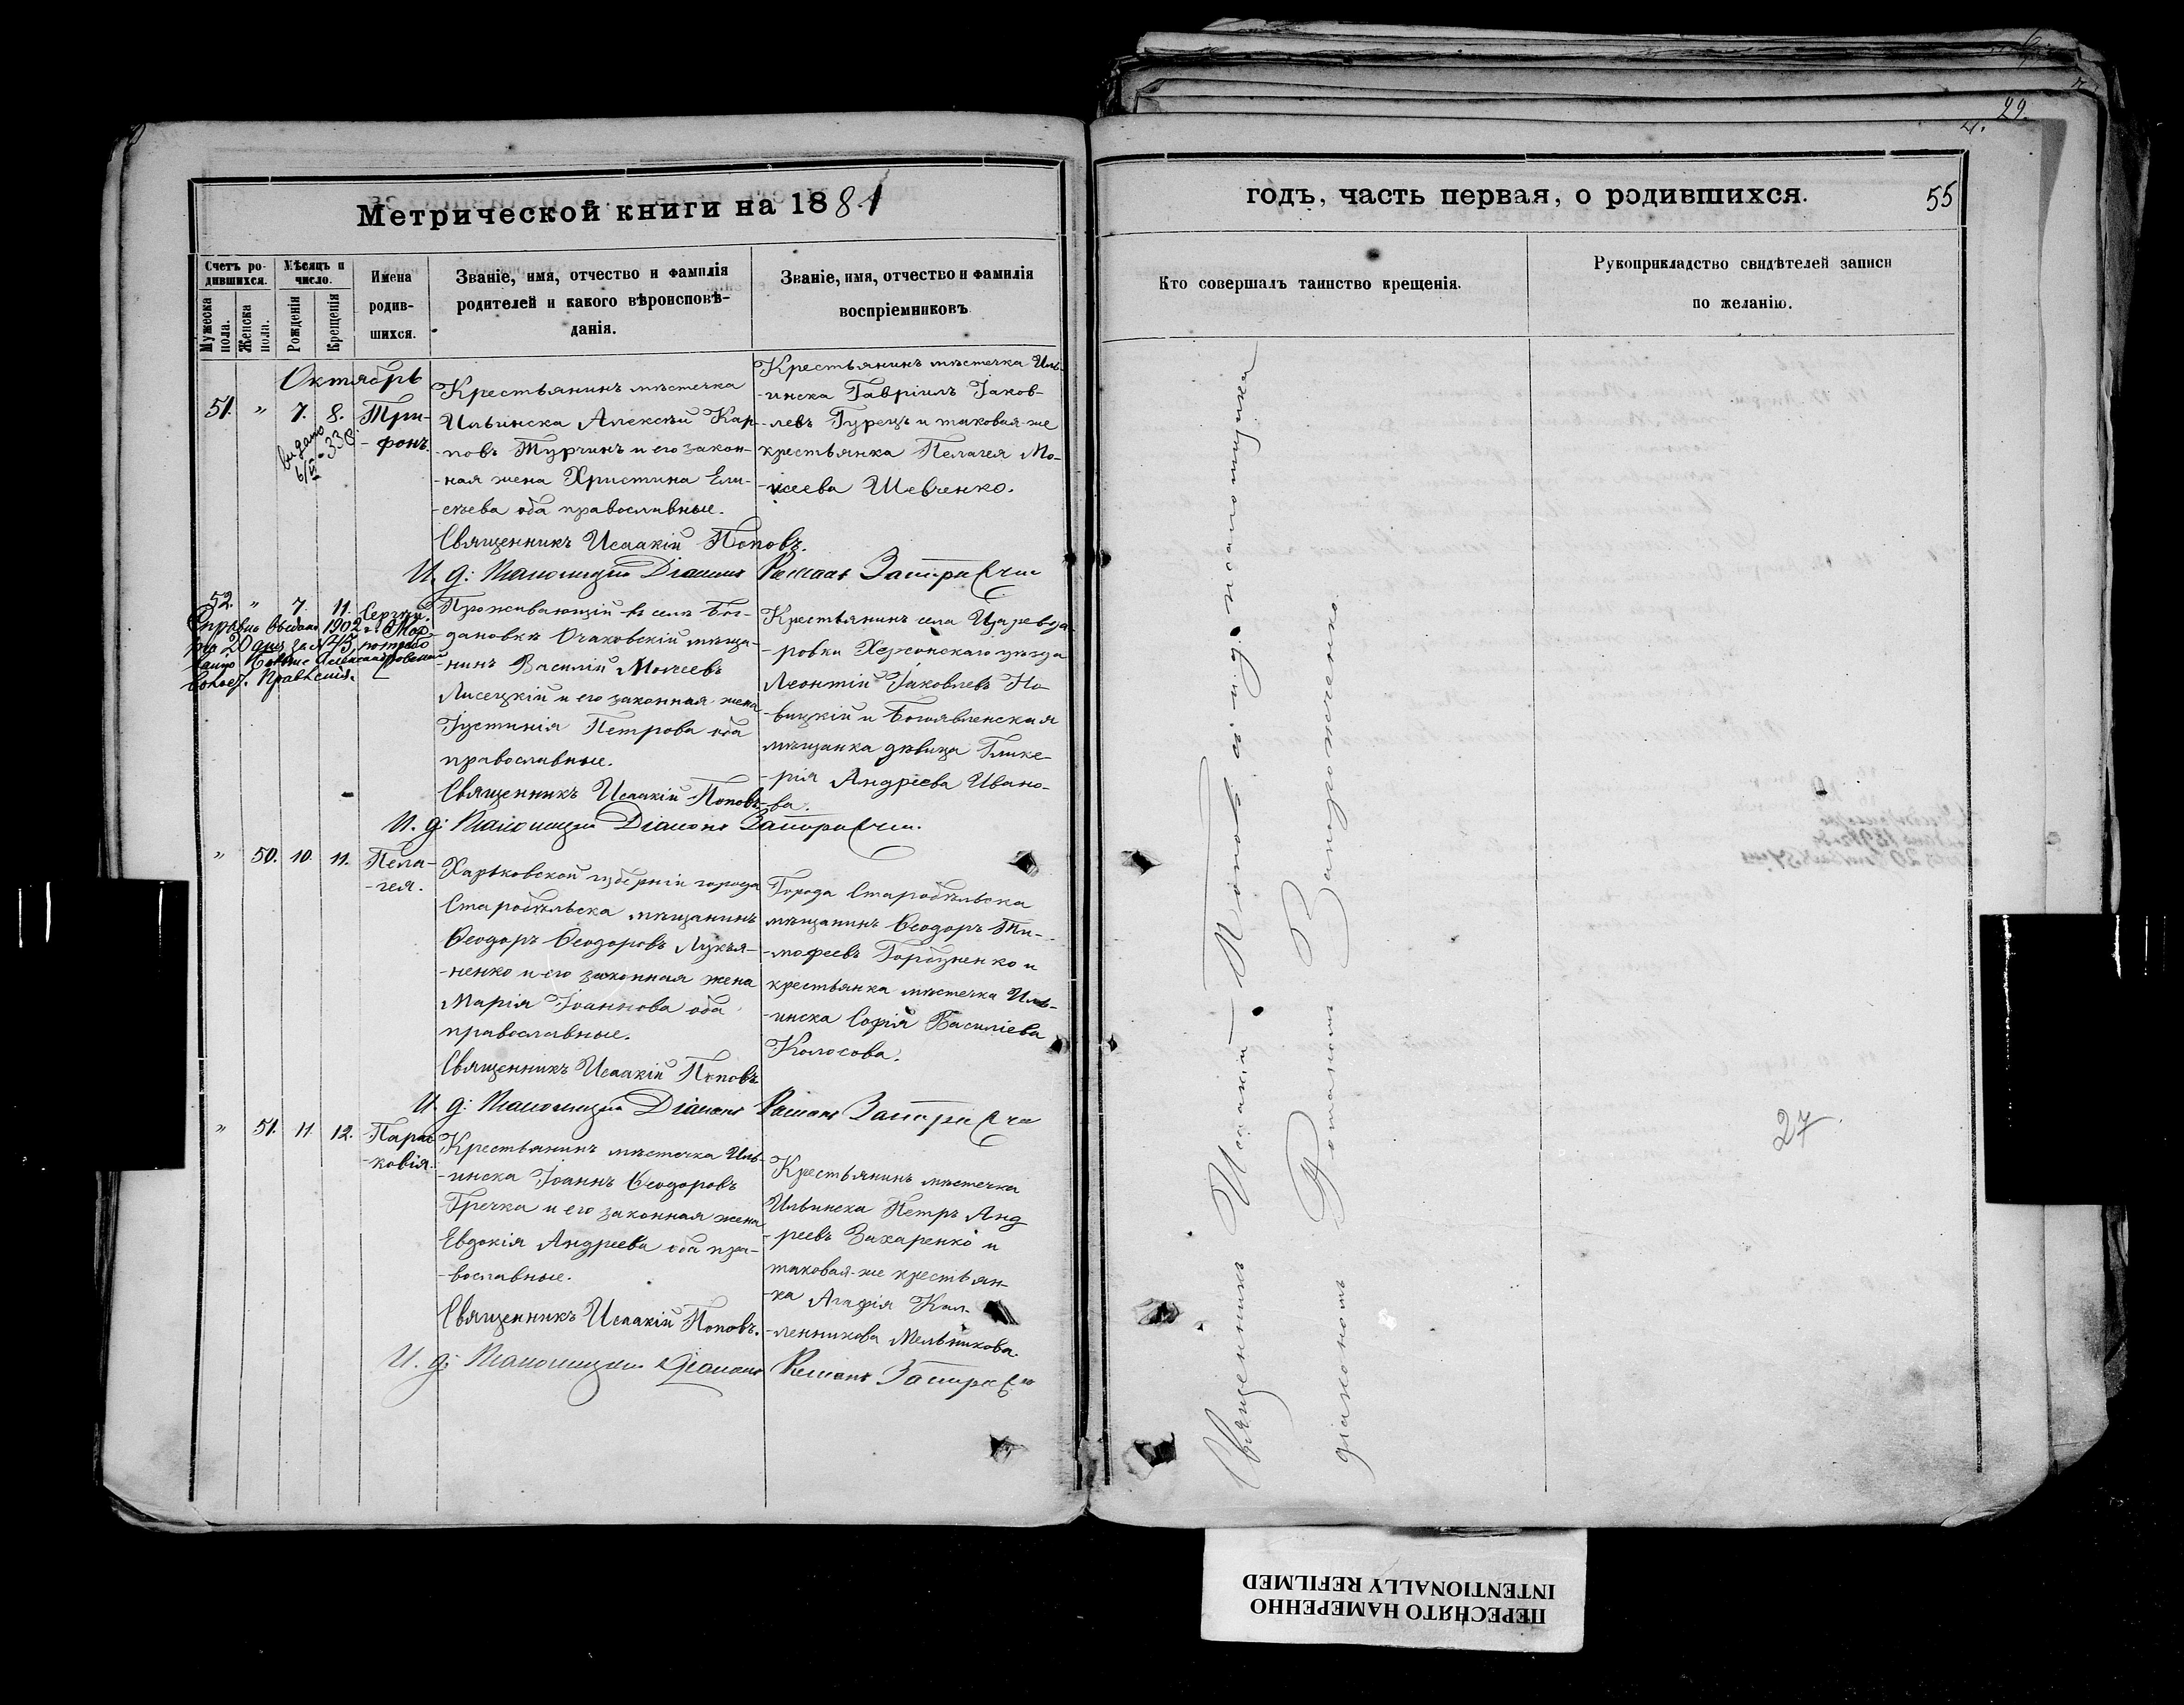 29.
Метрической книги на 1881
Счетъ ро-
дившихся.
Мѣсяцъ и
число.
Мужеска
пола.
Женска
пола.
Рожденія
Крещенія
Имена
родив-
шихся.
Званіе, имя, отчество и фамилія
родителей и какого вѣроисповѣ-
данія.
Званіе, имя, отчество и фамилія
воспріемниковъ
Октябрь
51. " 7. 8. Три-
-фонъ.
видано
6/VI-33
Крестьянинъ мѣстечка
Ильинска Алексѣй Кар-
-повъ Турчинъ и его закон-
-ная жена Христина Ели-
-сѣева оба православные.
Священникъ Исаакій Поповъ.
И. д. Псаломщика Діаконъ Романъ
Крестьянинъ мѣстечка Иль-
-инска Гавріилъ Іаков-
-левъ Гурецъ и таковая-же
крестьянка Пелагея Мо-
-исеева Шевченко.
52. " 7. 11. Сергѣй.
1902 г. Мар-
та 20 дня за № 45
Волос. Правленія.
Проживающій въ селѣ Бог-
-дановкѣ Очаковскій мѣща-
-нинъ Василій Моѵсеевъ
Лисецкій и его законная жена
Іустинія Петрова оба
православные.
Священникъ Исаакій Поповъ.
И. д. Псаломщика Діаконъ
Крестьянинъ села Царевода-
-ровки Херсонскаго уѣзда
Леонтій Іаковлевъ Но-
-вицкій и Богоявленская
мѣщанка дѣвица Глике-
-рія Андреева Ивано-
-ва.
" 50. 10. 11. Пела-
-гея.
Харьковской губерніи города
Старобѣльска мѣщанинъ
Ѳеодоръ Ѳеодоровъ Лукья-
-ненко и его законная жена
Марія Іоаннова оба
православные.
Священникъ Исаакій Поповъ
И. д. Псаломщика Діаконъ Романъ
Города Старобѣльска
мѣщанинъ Ѳеодоръ Ти-
-мофеевъ Горбуненко и
крестьянка мѣстечка Иль-
-инска Софія Василіева
Колосова.
" 51. 11. 12. Парас-
-ковія.
Крестьянинъ мѣстечка Иль-
-инска Іоаннъ Ѳеодоровъ
Гречка и его законная жена
Евдокія Андреева оба пра-
-вославные.
Священникъ Исаакій Поповъ.
И. д. Псаломщика Діаконъ Романъ
Крестьянинъ мѣстечка
Ильинска Петръ Анд
-реевъ Захаренко и
таковая-же крестьян-
-ка Агафія Кал-
-ленникова Мельникова.
годъ, часть первая, о родившихся.
55
Кто совершалъ таинство крещенія.
Рукоприкладство свидѣтелей записи
по желанію.
Священникъ Исаакій Поповъ съ и. д. псаломщика
діакономъ Романомъ Запорожченко
27
ПЕРЕСНЯТО НАМЕРЕННО
INTENTIONALLY REFILMED